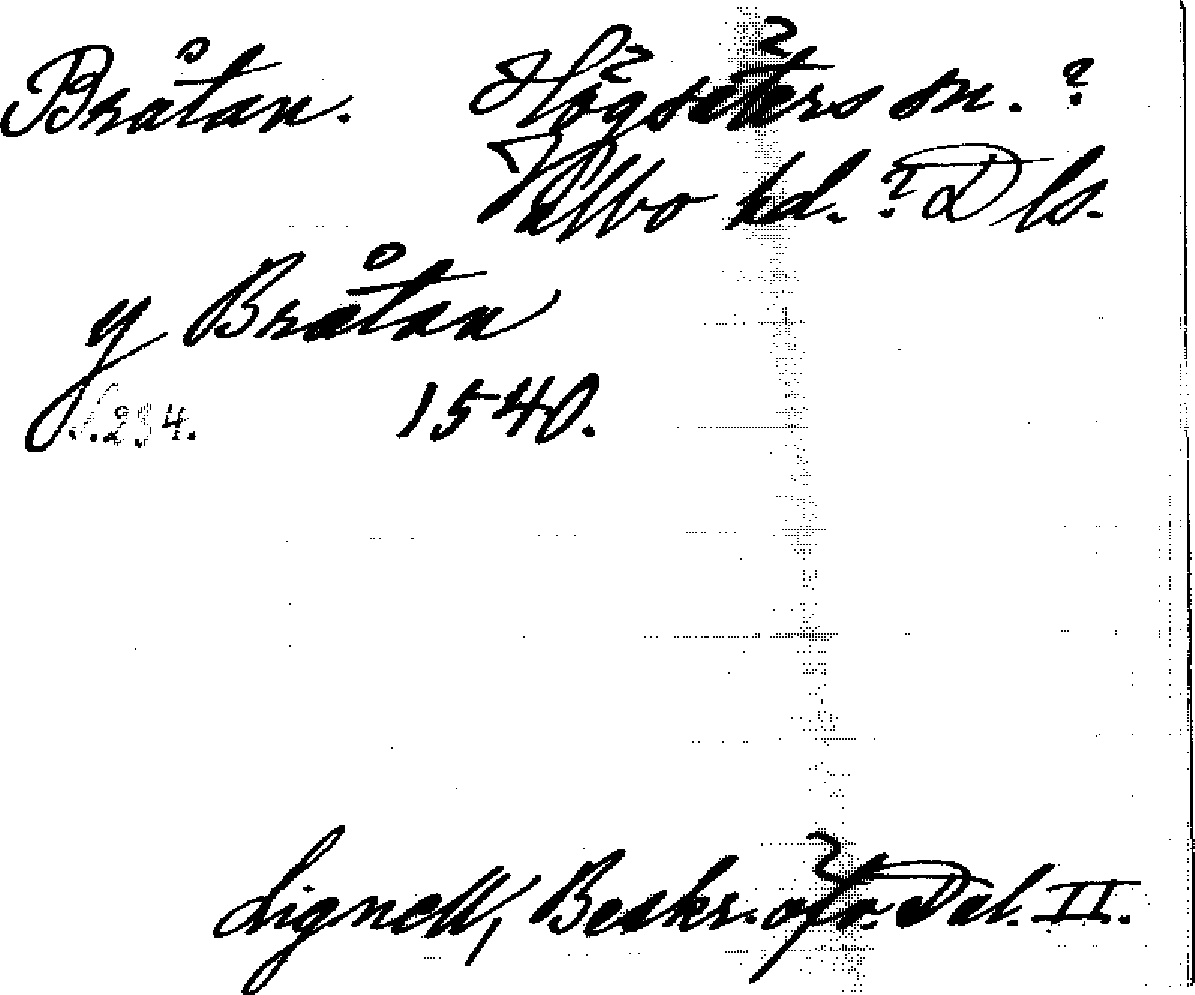 Bråtan. Högsäters sn. ?
Valbo hd. ? Dls.
y Bråtan
S. 234. 1540.
Lignell, Beskr. öfv. Dal. II.